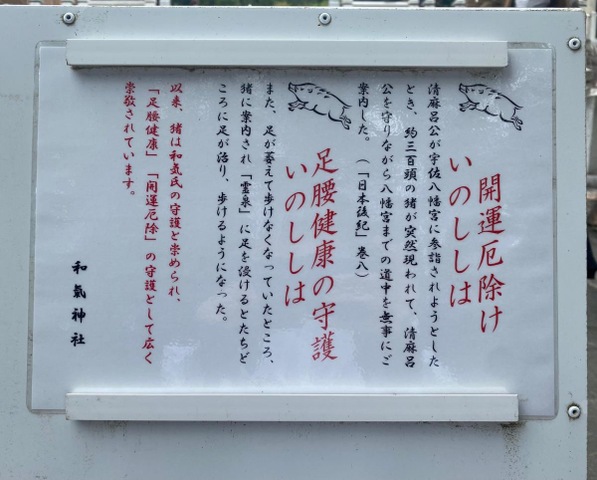 いのししは
開運厄除け
清麻呂公が宇佐八幡宮に参詣されようとした
とき、約三百頭の猪が突然現われて、清麻呂
公を守りながら八幡宮までの道中を無事にご
案内した。（「日本後紀」巻八）
いのししは
足腰健康の守護
また、足が萎えて歩けなくなっていたところ、
猪に案内され「霊泉」に足を浸けるとたちど
ころに足が治り、歩けるようになった。
以来、猪は和気氏の守護と崇められ、
「足腰健康」「開運厄除」の守護として広く
崇敬されています。
和氣神社